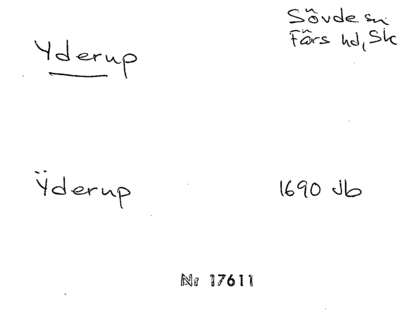 Yderup
Sövde sn
Färs hd, Sk
Ÿderup
1690 Jb
Nr 17611